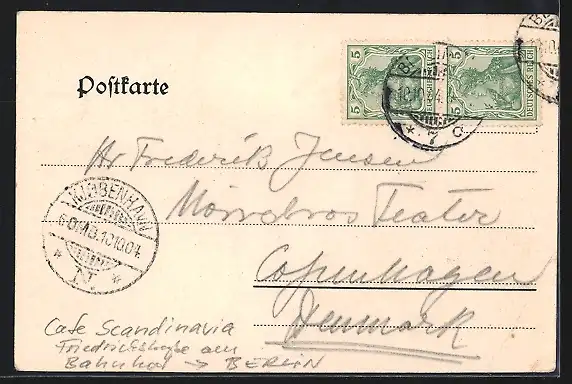 5
DEUTSCHES REICH
5
DEUTSCHES REICH
Postkarte
Hr Frederik Jensen
Nörrebros Teater
Copenhagen
Denmark
KJØBENHAVN
N
Cafe Scandinavia
Friedrichstraße am
Bahnhof → BERLIN